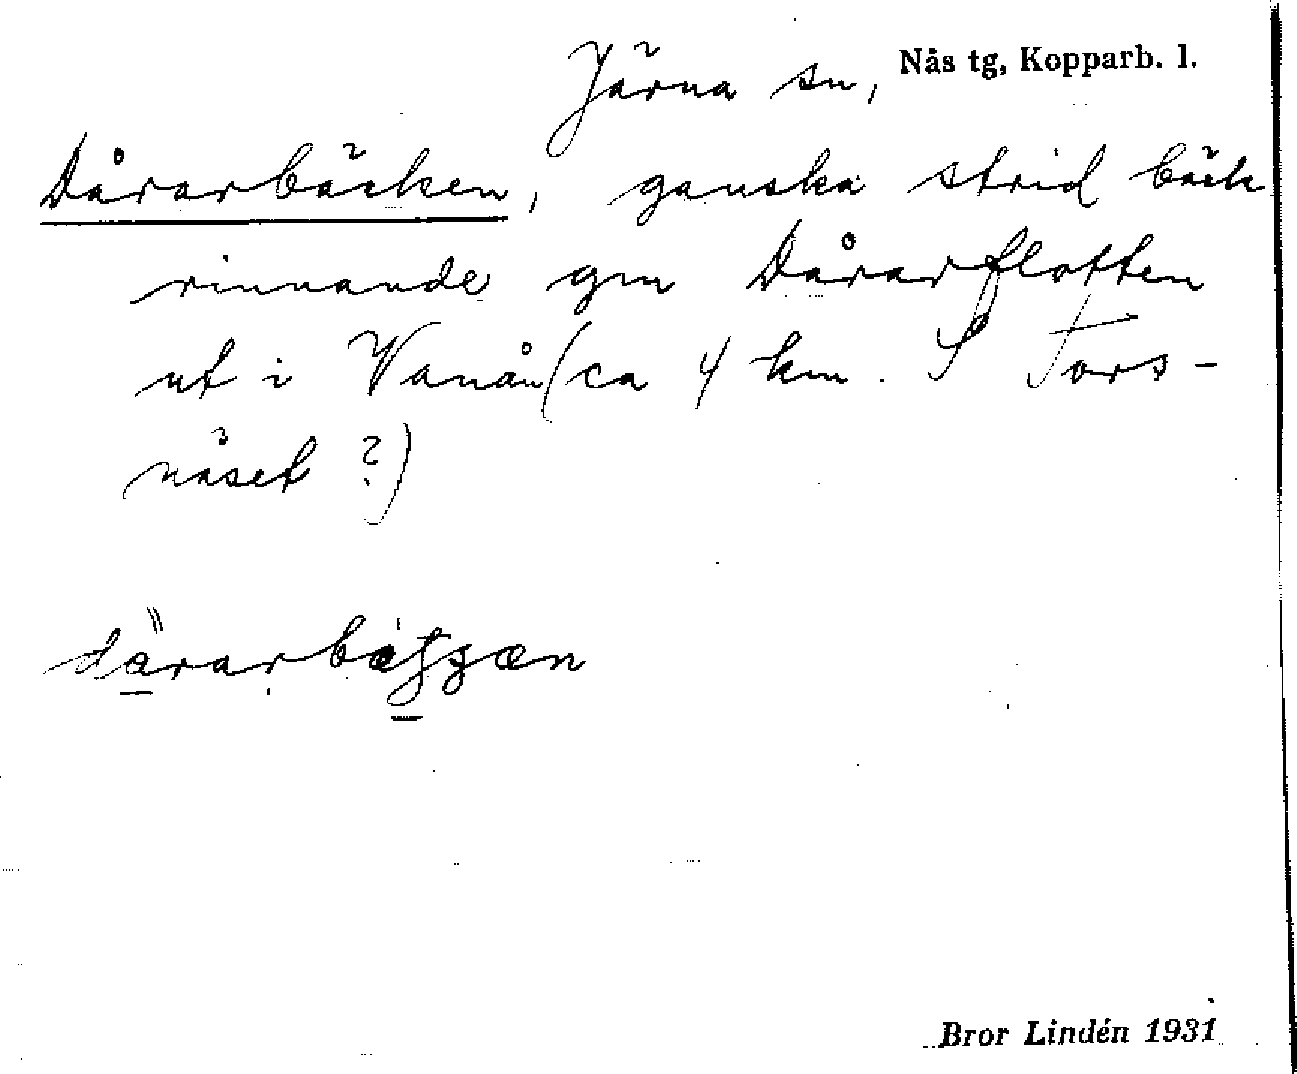 Järna sn, Nås tg, Kopparb. l.
Dårarbäcken, ganska strid bäck
rinnande gm Dårarflotten
ut i Vanån (ca 4 km. S Fors-
näset ?)
Bror Lindén 1931